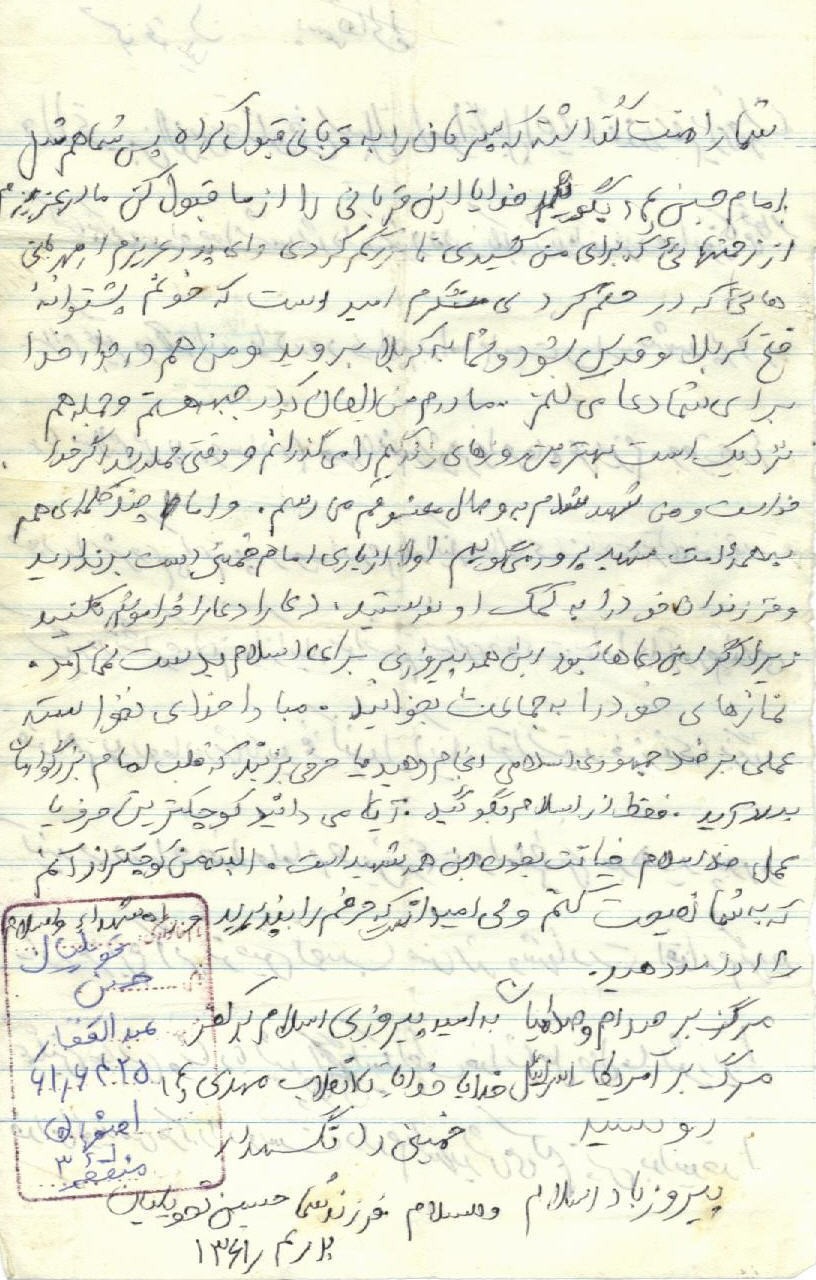 شما را منت گذاشته که پسرتان را به قربانی قبول کرده پس شما هم مثل
امام حسین (ع) بگویید خدایا این قربانی را از ما قبول کن مادر عزیزم
از زحمتهائی که برای من کشیدی تا بزرگم کردی و ای پدر عزیزم از مهربانی
هائی که در حقم کردی متشکرم امید است که خونم پشتوانهٔ
فتح کربلا و قدس شود و شما به کربلا بروید و من هم در جوار خدا
برای شما دعا می کنم. مادرم من الان که در جبهه هستم و حمله هم
نزدیک است بهترین روزهای زندگیم را می گذرانم و وقتی حمله شد اگر خدا
خواست و من شهید شدم به وصال معشوقم می رسم. و اما چند کلمه ای هم
به همه امت شهید پرور میگویم اولا از یاری امام خمینی دست برندارید
و فرزندان خود را به کمک او بفرستید. دعا را دعا را فراموش نکنید
زیرا اگر این دعاها نبود این همه پیروزی برای اسلام بدست نمی آمد.
نمازهای خود را به جماعت بخوانید. مبادا خدای نخواسته
عملی بر ضد جمهوری اسلامی انجام دهید یا حرفی بزنید که قلب امام بزرگوارمان
بدرد آید. فقط از اسلام بگوئید. آیا می دانید کوچکترین حرف یا
عمل ضد اسلام خیانت بخون این همه شهید است. البته من کوچکتر از آنم
که به شما نصیحت کنم ولی امیدوارم که حرفم را بپذیرید و راه شهدا و اسلام
را ادامه دهید.
مرگ بر صدام و صدامیان به امید پیروزی اسلام بر کفر
مرگ بر آمریکا اسرائیل خدایا خدایا تا انقلاب مهدی (ع)
خمینی را نگهدار
پیروز باد اسلام والسلام فرزند شما حسین تحویلیان
۱۳۶۱
تحویلیان
حسین
عبدالغفار
اصفهان
منطقه ۳